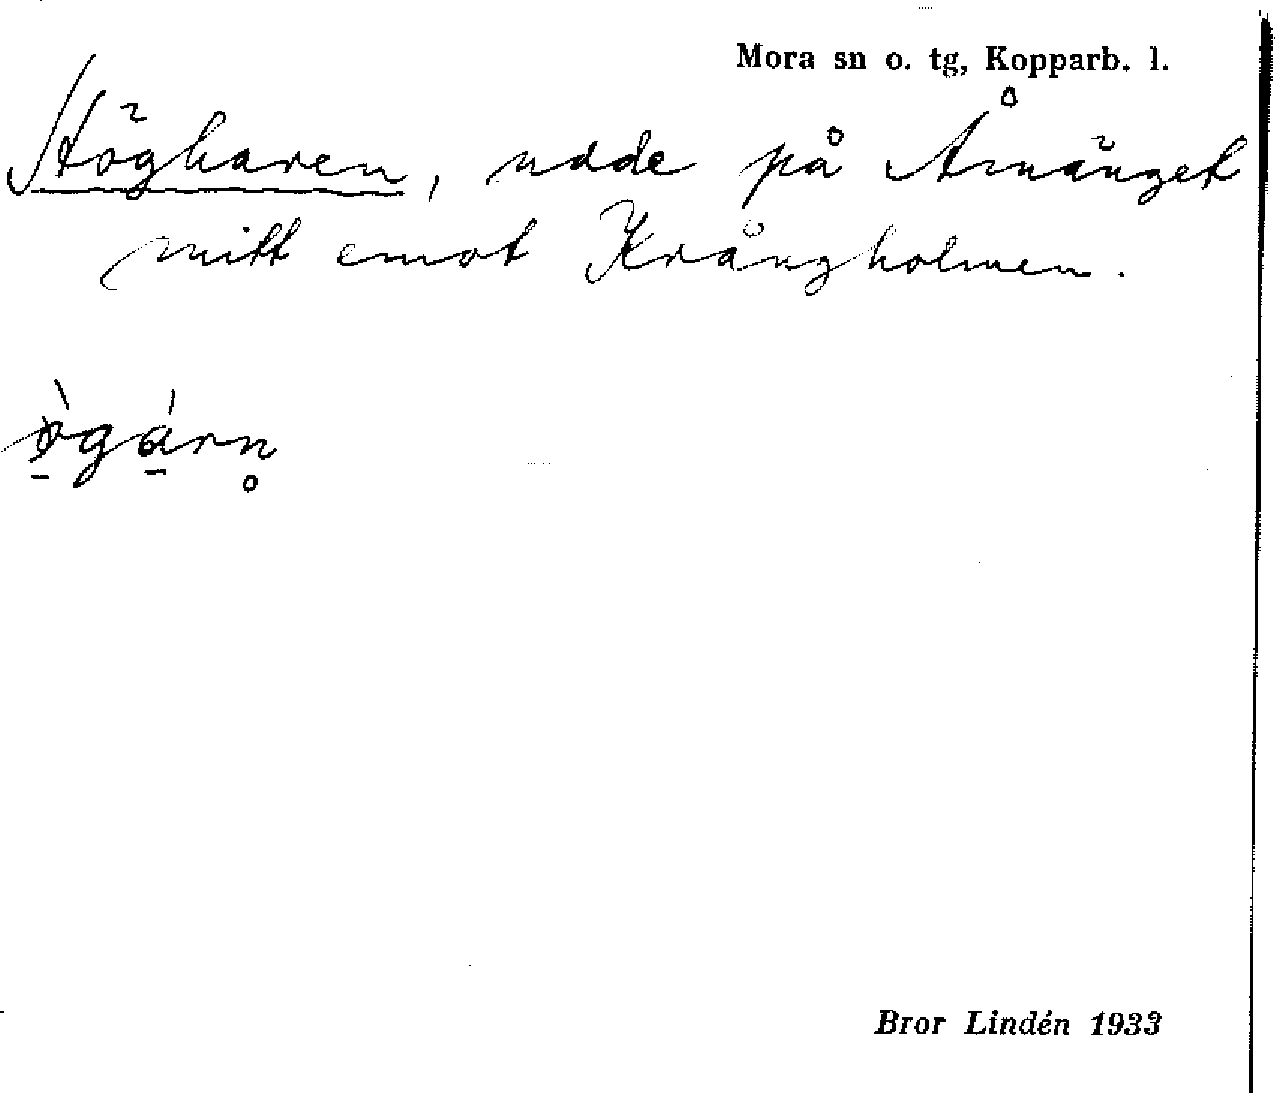 Mora sn o. tg, Kopparb. l.
Högharen, udde på Årnänget
mitt emot Krångholmen.
ò̱gá̱rn̥
Bror Lindén 1933